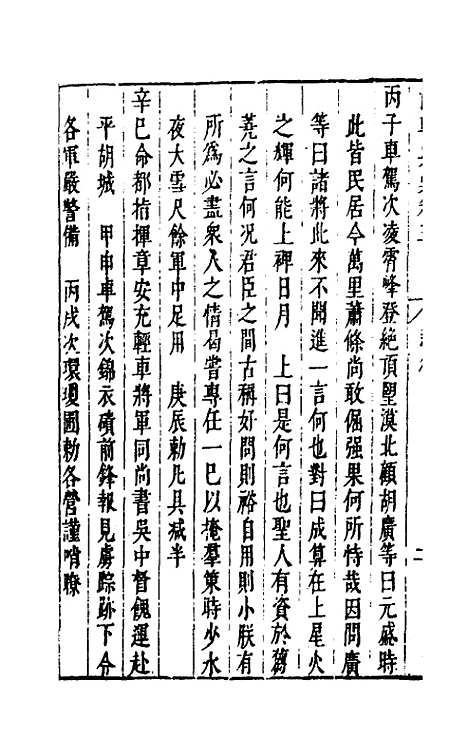 丙子車駕次凌霄峰登絶頂望漠北顧胡廣等曰元盛時
此皆民居今萬里蕭條尚敢倔强果何所恃哉因問廣
等曰諸將此來不聞進一言何也對曰成算在上星火
之輝何能上裨日月　上曰是何言也聖人有資於蒭
蕘之言何况君臣之間古稱好問則裕自用則小朕有
所爲必盡衆人之情曷嘗專任一已以掩羣策時少水
夜大雪尺餘軍中足用　庚辰勅凡具减半
辛巳命都指揮章安充輕車將軍同尚書吳中督餽運赴
平胡城　甲申車駕次錦衣磧前鋒報見虜踪跡下令
各軍嚴警備　丙戌次環瓊圃勅各營謹哨瞭
二